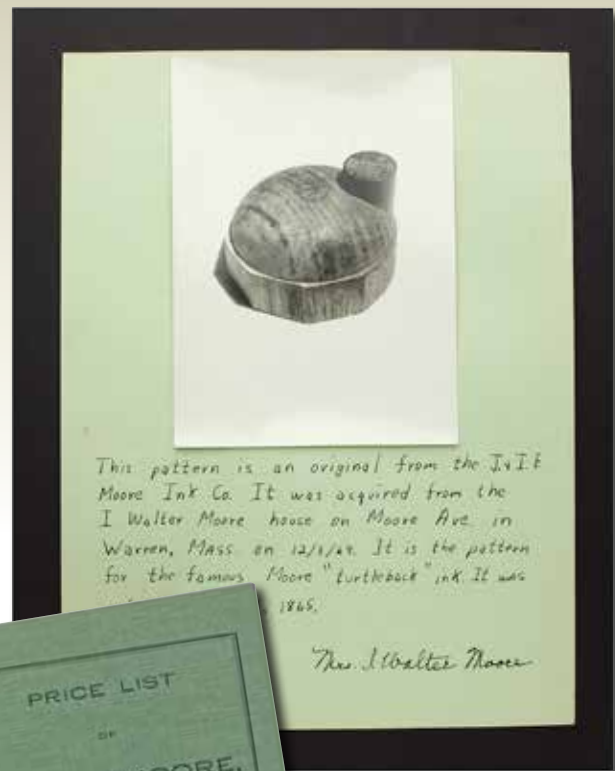 This pattern is an original from the J & I E
Moore Ink Co. It was acquired from the
I Walter Moore house on Moore Ave. in
Warren, Mass on
for the famous Moore "turtleback" ink. It was
1865.
Mrs. I Walter Moore
PRICE LIST
OF
MOORE,